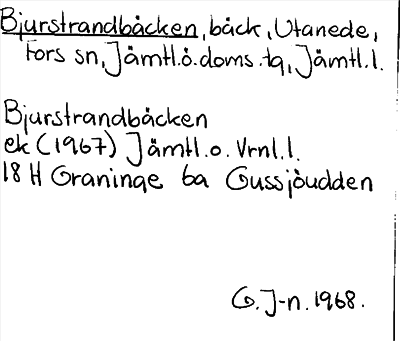 Bjurstrandbäcken, bäck, Utanede,
Fors sn, Jämtl.ö.doms.tg, Jämtl.l.
Bjurstrandbäcken
ek (1967) Jämtl.o. Vrnl.l.
18 H Graninge 6a Gussjöudden
G. J-n. 1968.